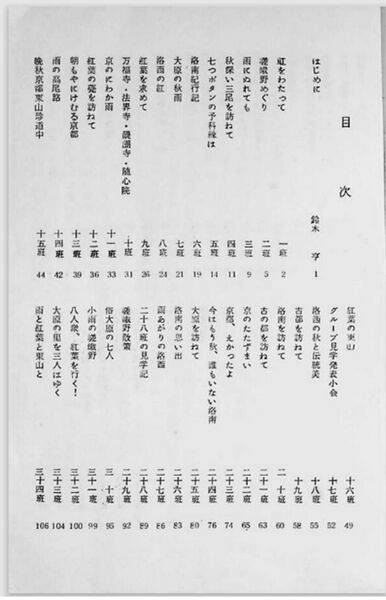 目次
はじめに 鈴木 亨 1
虹をわたって 一班 2
嵯峨野めぐり 二班 5
雨にぬれても 三班 9
秋深い三尾を訪ねて 四班 11
七つボタンの予科練は 五班 14
洛南紀行記 六班 19
大原の秋雨 七班 21
洛西の紅 八班 24
紅葉を求めて 九班 26
万福寺・法界寺・醍醐寺・随心院 十班 31
京のにわか雨 十一班 33
紅葉の甍を訪ねて 十二班 36
朝もやにけむる京都 十三班 39
雨の高尾路 十四班 42
晩秋京都東山珍道中 十五班 44
紅葉の東山 十六班 49
グループ見学発表小会 十七班 52
洛西の秋と伝統美 十八班 55
古都を訪ねて 十九班 58
洛南を訪ねて 二十班 60
古の都を訪ねて 二十一班 63
京のたたずまい 二十二班 65
京都、えかったよ 二十三班 74
今はもう秋、誰もいない洛南 二十四班 76
大原を訪ねて 二十五班 80
洛南の思い出 二十六班 83
雨あがりの洛西 二十七班 86
二十八班の見学記 二十八班 89
嵯峨野散策 二十九班 92
俗大原の七人 三十班 95
小雨の嵯峨野 三十一班 99
八人衆、紅葉を行く! 三十二班 100
大原の里を三人はゆく 三十三班 104
雨と紅葉と東山と 三十四班 106